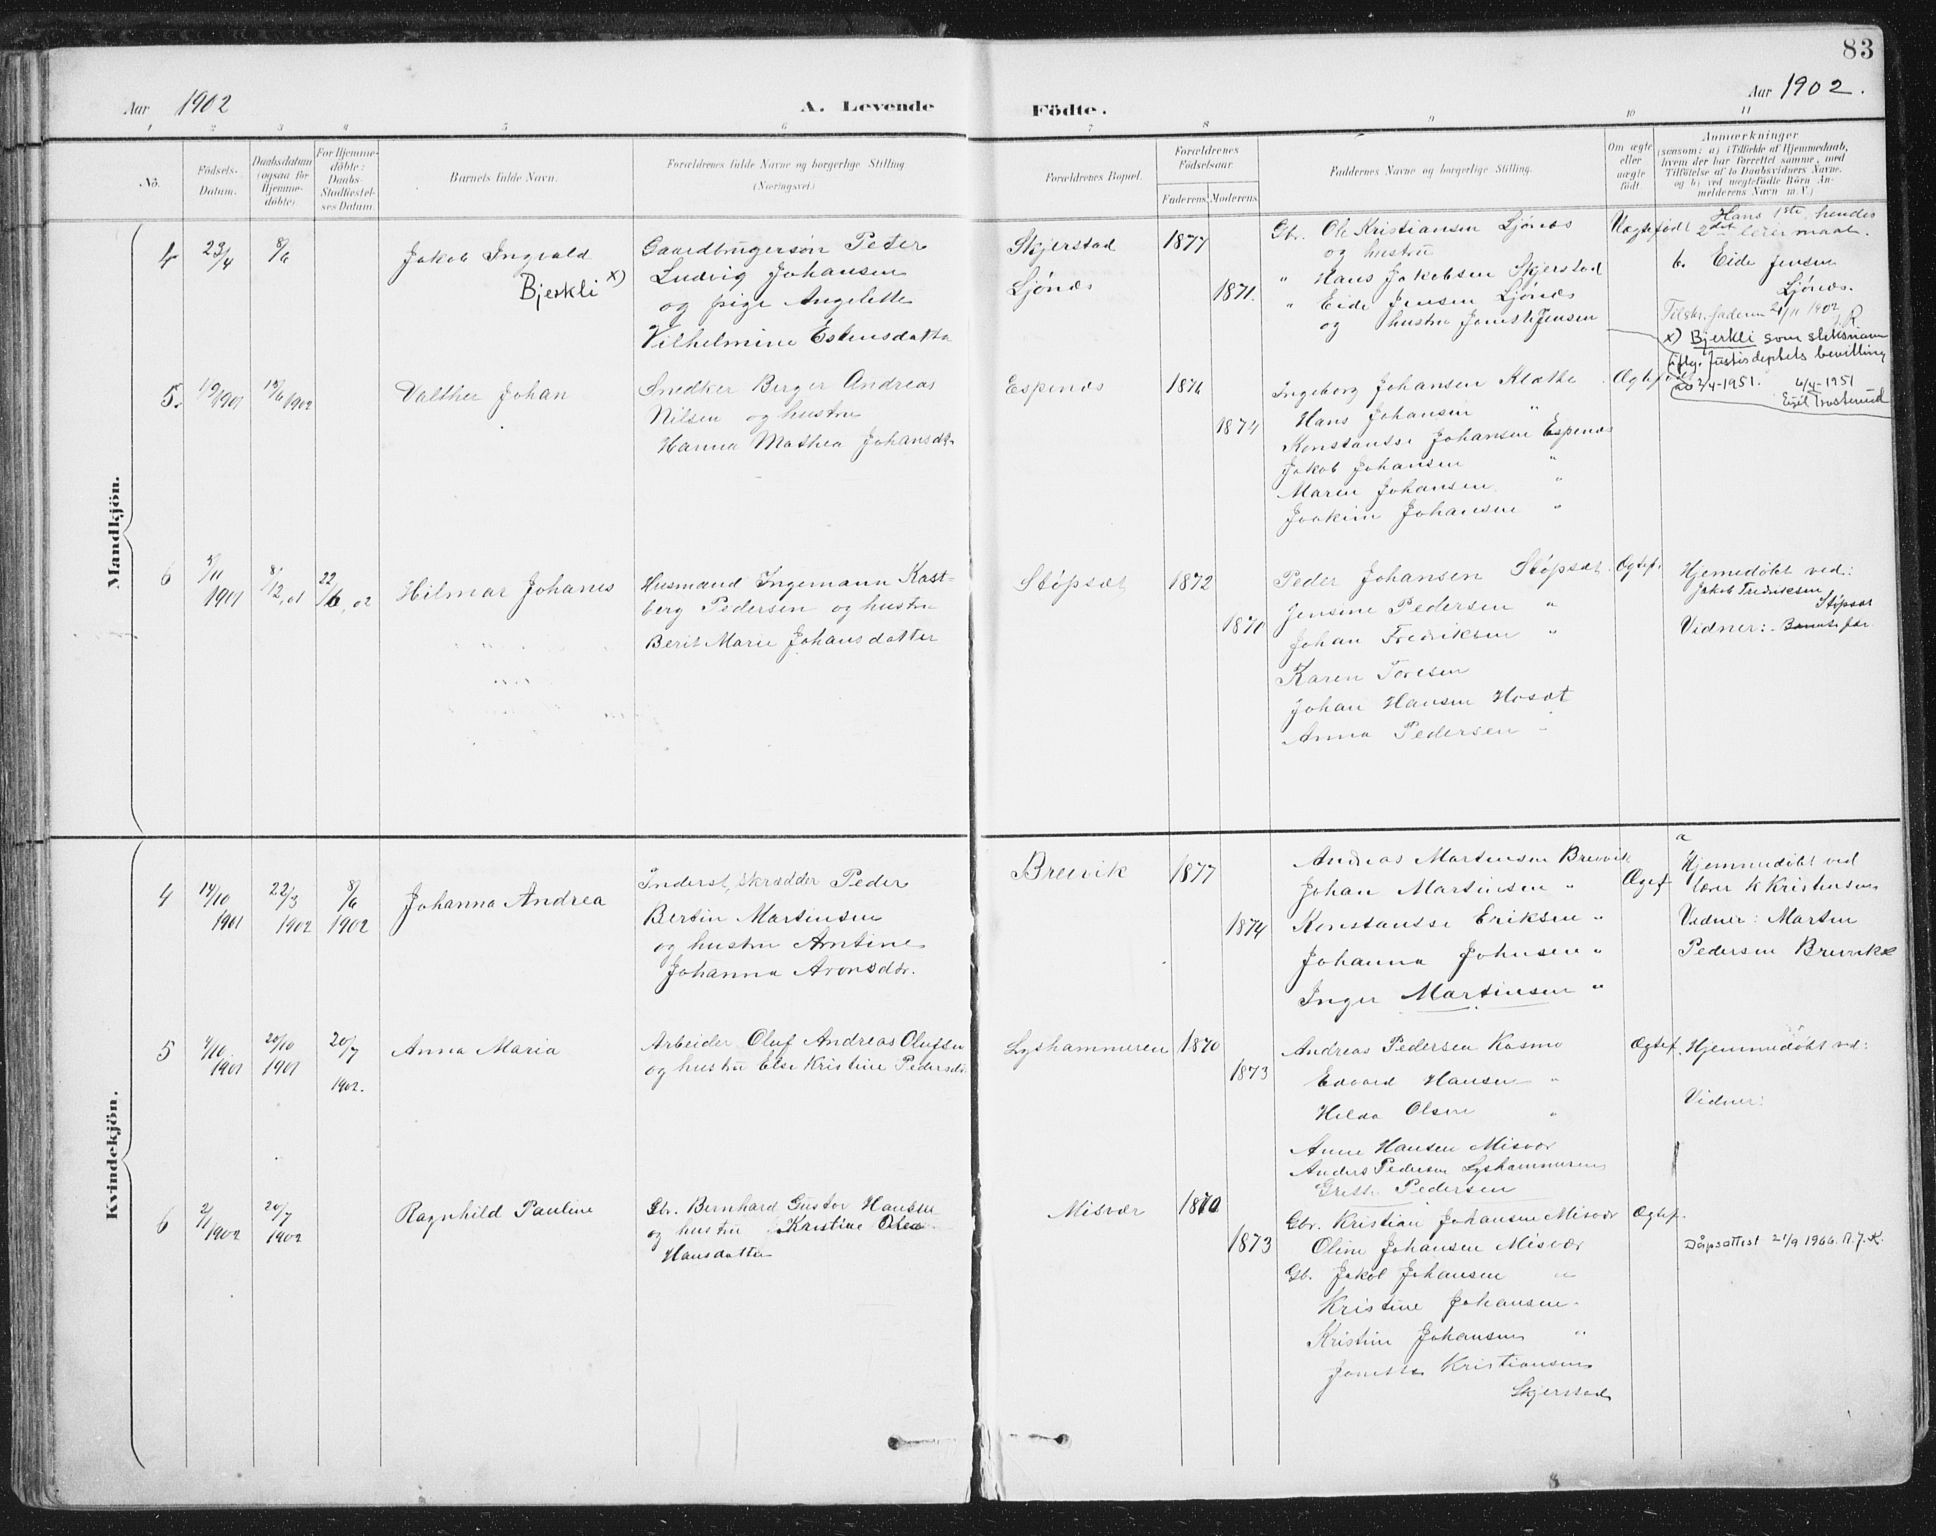 83
Aar 1902
A. Levende
Födte.
Aar 1902.
1 2 3 4 5 6 7 8 9 10 11
No.
Födsels-
Datum.
Daabsdatum
(ogsaa for
Hjemme-
döbte)
For Hjemme-
döbte:
Daabs-
Stadfæstel-
ses Datum.
Barnets fulde Navn.
Forældrenes fulde Navne og borgerlige Stilling
(Næringsvei)
Forældrenes Bopæl.
Forældrenes
Födselsaar.
Faderens. Moderens.
Faddernes Navne og borgerlige Stilling.
Om ægte
eller
uægte
födt.
Anmærkninger
(saasom: a) i Tilfælde af Hjemmedaab,
hvem der har forrettet samme, med
Tilföielse af to Daabsvidners Navne,
og b) ved uægtefödte Börn An-
melderens Navn m. V.)
Mandkjön.
4 23/4 8/6
Jakob Ingvald
Bjerkli x)
Gaardbrugersøn Peter
Ludvig Johansen
og pige Angelette
Vilhelmine Estensdatter
Skjerstad
Ljönes
1877
1871.
Gbr. Ole Kristiansen Ljönes
og hustru
" Hans Jakobsen Skjerstad
" Eide Jensen Ljönes
og hustru Jensen
Uægtefödt
Hans 1ste, hendes
2det leiermaal.
b. Eide Jensen
Ljönes.
Tilskr. faderen 21/11 1902
x) Bjerkli som slektsnavn
iflg. Justisdeptets bevilling
av 2/4-1951. 6/4-1951
5. 19/1901 15/6 1902
Valther Johan
Snedker Berger Andreas
Nilsen og hustru
Hanna Mathea Johansdtr
Espenæs
1876
1874
Ingeborg Johansen Klæthe
Hans Johansen "
Konstanse Johansen Espenæs
Jakob Johansen "
Maren Johansen "
Joakim Johansen "
Ægtefödt
6 5/11 1901 8/12, 01 22/6, 02
Hilmar Johanes
Husmand Ingemann Kast-
berg Pedersen og hustru
Berit Marie Johansdatter
Støpsæt
1872
1871
Peder Johansen Støpsæt
Jensine Pedersen "
Johan Fredriksen "
Karen Toresen
Johan Hansen Hosæt
Anna Pedersen "
Ægtef.
Hjemedøbt ved:
Jakob Fredriksen
Støpsæt
Vidner: Barnets far
Kvindekjön.
4 14/10 1901 22/3 1902 8/6 1902
Johanna Andrea
Inderst, skrædder Peder
Bertin Martinsen
og hustru Arntine
Johanna Aronsdtr.
Breivik
1877
1874
Andreas Martinsen Breivik
Johan Martinsen "
Konstanse Eriksen "
Johanna Johnsen "
Inger Martinsen "
Ægtef.
a
Hjemmedøbt ved
lærer K Kristensen
Vidner: Marten
Pedersen Breivik
5 4/10 1901 20/10 1901 20/7 1902.
Anna Maria
Arbeider Oluf Andreas Olufsen
og hustru Else Kristine Pedersdtr
Lyshammeren
1870
1873
Andreas Pedersen Kosmo
Edvard Hansen "
Hilda Olsen "
Anne Hansen Misvær
Anders Pedersen Lyshammeren
Grethe Pedersen
Ægtef.
Hjemmedøbt ved:
Vidner:
6 2/1 1902 20/7 1902
Ragnhild Pauline
Gbr. Bernhard Gustav Hansen
og hustru Kristine Olea
Hansdatter
Misvær
1870
1873
Gbr. Kristian Johansen Misvær
Oline Johansen Misvær
Gb. Jakob Johansen "
Kristine Johansen
Kristine Johansen "
Kristiansen
Skjerstad
Ægtef.
Dåpsattest 21/9 1966. N.J.K.